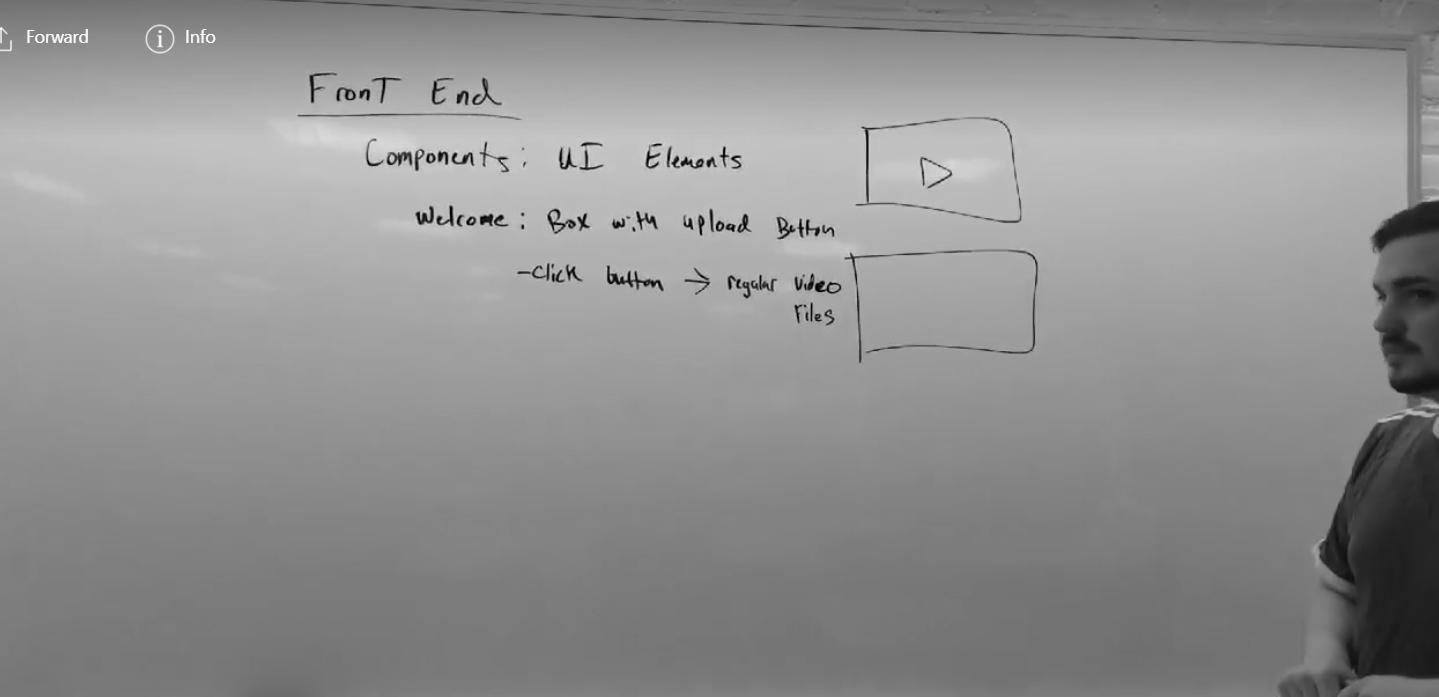 Forward Info
FronT End
Components: UI Elements
Welcome: Box with upload Button
-click button → regular video
Files